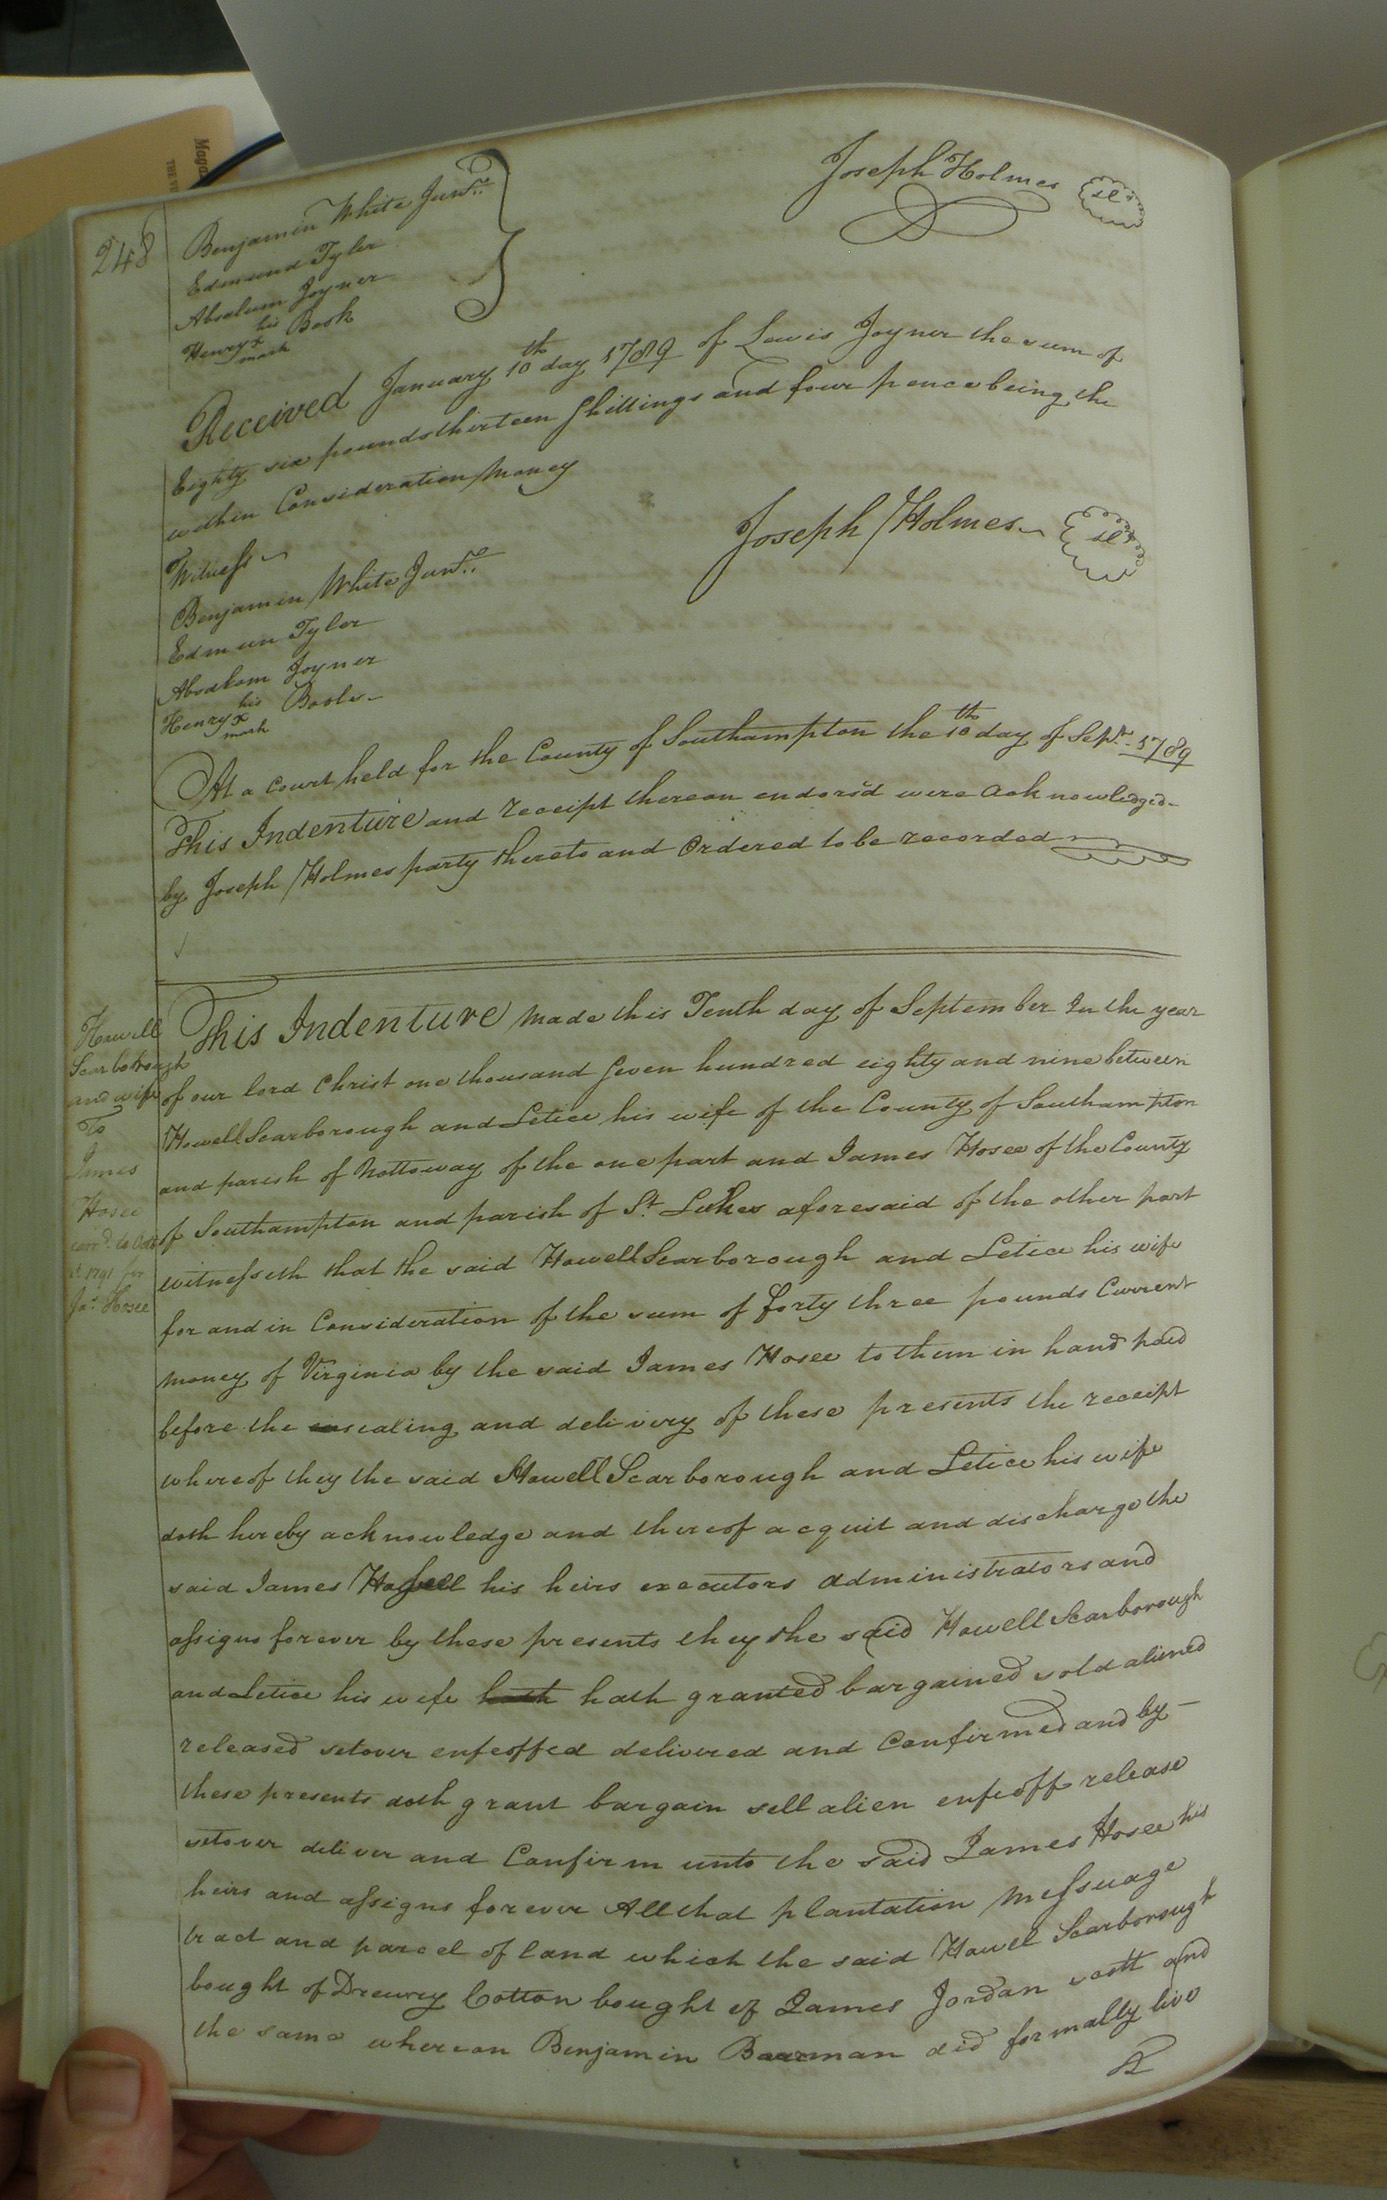 248
Benjamin White Junr.
Edmund Tyler
Absalum Joyner
Henry his x mark Bosk
Joseph Holmes
Received January 10th day 1789 of Lewis Joyner the sum of
Eighty six pounds thirteen shillings and four pence being the
within Consideration Money
Joseph Holmes
Witness
Benjamin White Junr.
Edmun Tyler
Abraham Joyner
Henry his x mark
At a Court held for the County of Southampton the 10th day of Sepr. 1789
This Indenture and receipt thereon endors'd were Acknowledged
by Joseph Holmes party thereto and Ordered to be recorded
Howell
Scarborough
and wife
To
James
Hosee
Jas. Hosee
This Indenture Made this Tenth day of September In the year
of our lord Christ one thousand Seven hundred eighty and nine between
Howell Scarborough and Letice his wife of the County of Southampton
and parish of Nottoway of the one part and James Hosee of the County
of Southampton and parish of St. Lukes aforesaid of the other part
witnesseth that the said Howell Scarborough and Letice his wife
for and in Consideration of the sum of forty three pounds Current
Money of Virginia by the said James Hosee to them in hand paid
before the sealing and delivery of these presents the receipt
whereof they the said Howell Scarborough and Letice his wife
doth hereby acknowledge and thereof acquit and discharge the
said James his heirs executors administrators and
assigns forever by these presents they the said Howell Scarborough
and Letice his wife hath granted bargained sold aliened
released setover enfeoffed delivered and Confirmed and by
these presents doth grant bargain sell alien enfeoff release
setover deliver and Confirm unto the said James Hosee his
heirs and assigns forever All that plantation Messuage
tract and parcel of land which the said Howel Scarborough
bought of Drewry Cotton bought of James Jordan scott and
the same whereon Benjamin did formally live